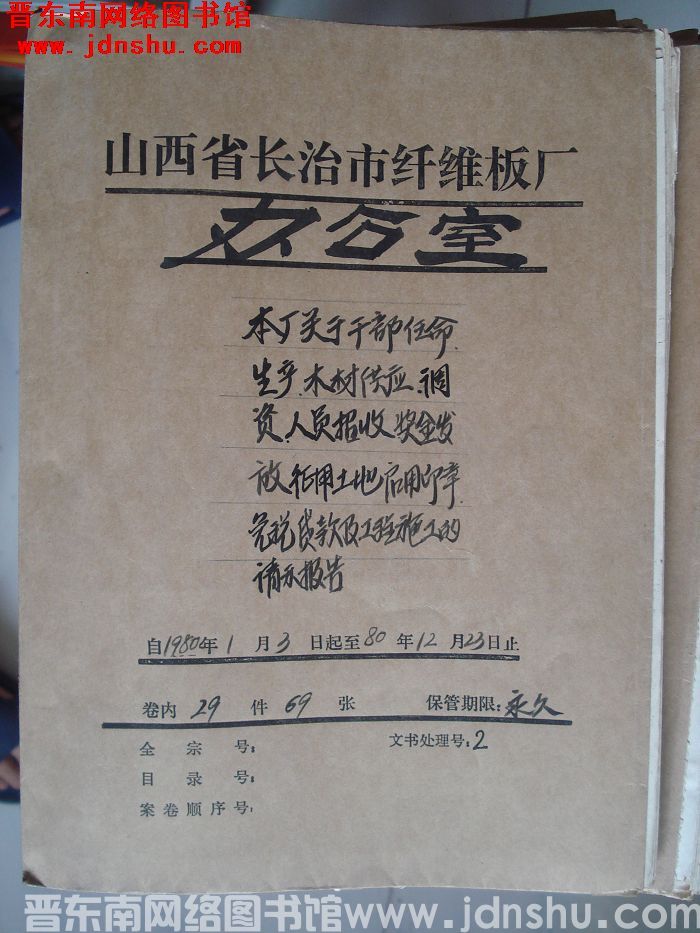 晋东南网络图书馆
www.jdnshu.com
山西省长治市纤维板厂
办公室
本厂关于干部任命
生产、木材供应、调
资、人员招收、奖金发
放征用土地启用印章
免税贷款及工程施工的
请示报告
自1980年1月3日起至80年12月23日止
卷内 29 件 69 张 保管期限:永久
全宗号: 文书处理号:2
目录号:
案卷顺序号:
晋东南网络图书馆www.jdnshu.com